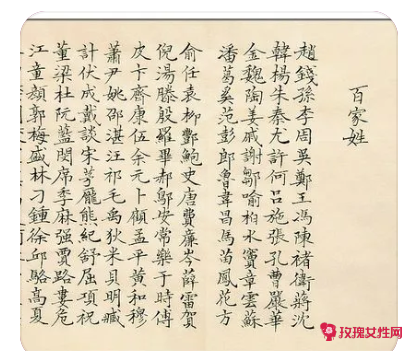 百家姓
趙錢孫李周吳鄭王馮陳褚衛蔣沈
韓楊朱秦尤許何呂施張孔曹嚴華
金魏陶姜戚謝鄒喻柏水竇章雲蘇
潘葛奚范彭郎魯韋昌馬苗鳳花方
俞任袁柳酆鮑史唐費廉岑薛雷賀
倪湯滕殷羅畢郝鄔安常樂於時傅
皮卞齊康伍余元卜顧孟平黃和穆
蕭尹姚邵湛汪祁毛禹狄米貝明臧
計伏成戴談宋茅龐熊紀舒屈項祝
董梁杜阮藍閔席季麻强賈路婁危
江童顏郭梅盛林刁鍾徐邱駱高夏
玫瑰女性网